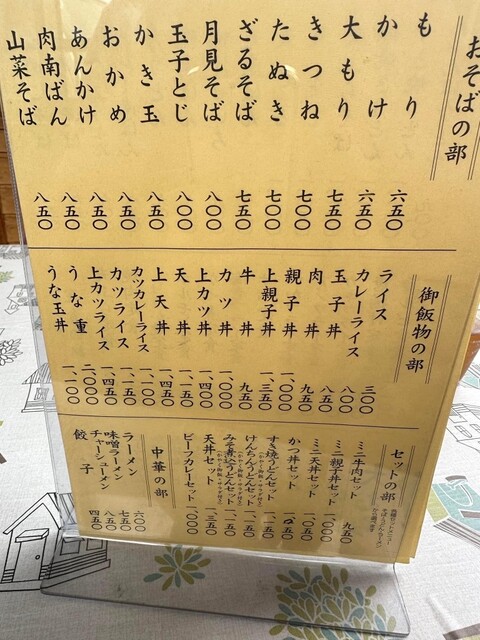 おそばの部
もり 六五〇
かけ 六五〇
大もり 七五〇
きつね 七〇〇
たぬき 七〇〇
ざるそば 七五〇
月見そば 八〇〇
玉子とじ 八〇〇
かき玉 八五〇
おかめ 八五〇
あんかけ 八五〇
肉南ばん 八五〇
山菜そば 八五〇
御飯物の部
ライス 三〇〇
カレーライス 八〇〇
玉子丼 八五〇
肉丼 九五〇
親子丼 一、〇〇〇
上親子丼 一、三五〇
牛丼 九五〇
カツ丼 一、〇〇〇
上カツ丼 一、四〇〇
天丼 一、一五〇
上天丼 一、四五〇
カツカレーライス 一、一〇〇
カツライス 一、一〇〇
上カツライス 一、四五〇
うな重 二、〇〇〇
うな玉丼 一、一〇〇
セットの部
ミニ牛肉セット 九五〇
ミニ親子丼セット 一、〇〇〇
ミニ天丼セット 一、〇五〇
かつ丼セット 一、〇五〇
すき焼うどんセット 一、一五〇
けんちんうどんセット 一、一五〇
みそ煮込うどんセット 一、一五〇
天丼セット 一、三五〇
ビーフカレーセット 一、〇〇〇
中華の部
ラーメン 六〇〇
味噌ラーメン 七五〇
チャーシューメン 八五〇
餃子 四五〇